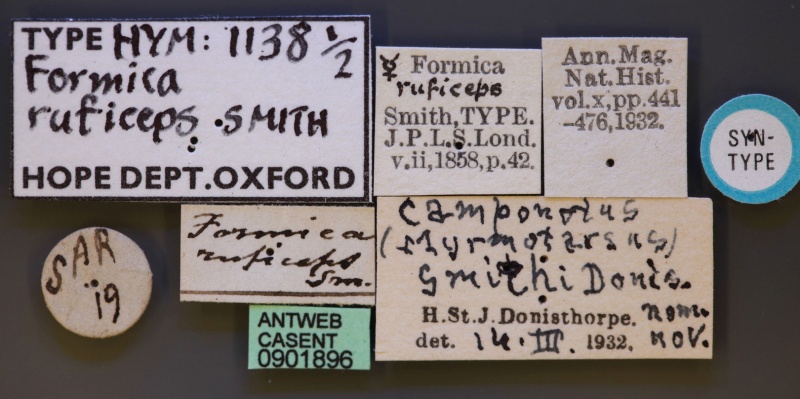 TYPE HYM: 1138 1/2
Formica
ruficeps. SMITH
HOPE DEPT. OXFORD
☿ Formica
ruficeps
Smith, TYPE.
J.P.L.S. Lond.
v.ii, 1858, p.42.
Ann. Mag.
Nat. Hist.
vol.x, pp. 441
-476, 1932.
SYN-
TYPE
SAR
19
Formica
ruficeps
Sm.
Camponotus
(Myrmotarsus)
Smithi Donis.
H. St. J. Donisthorpe. nom.
det. 14. III. 1932. nov.
ANTWEB
CASENT
0901896